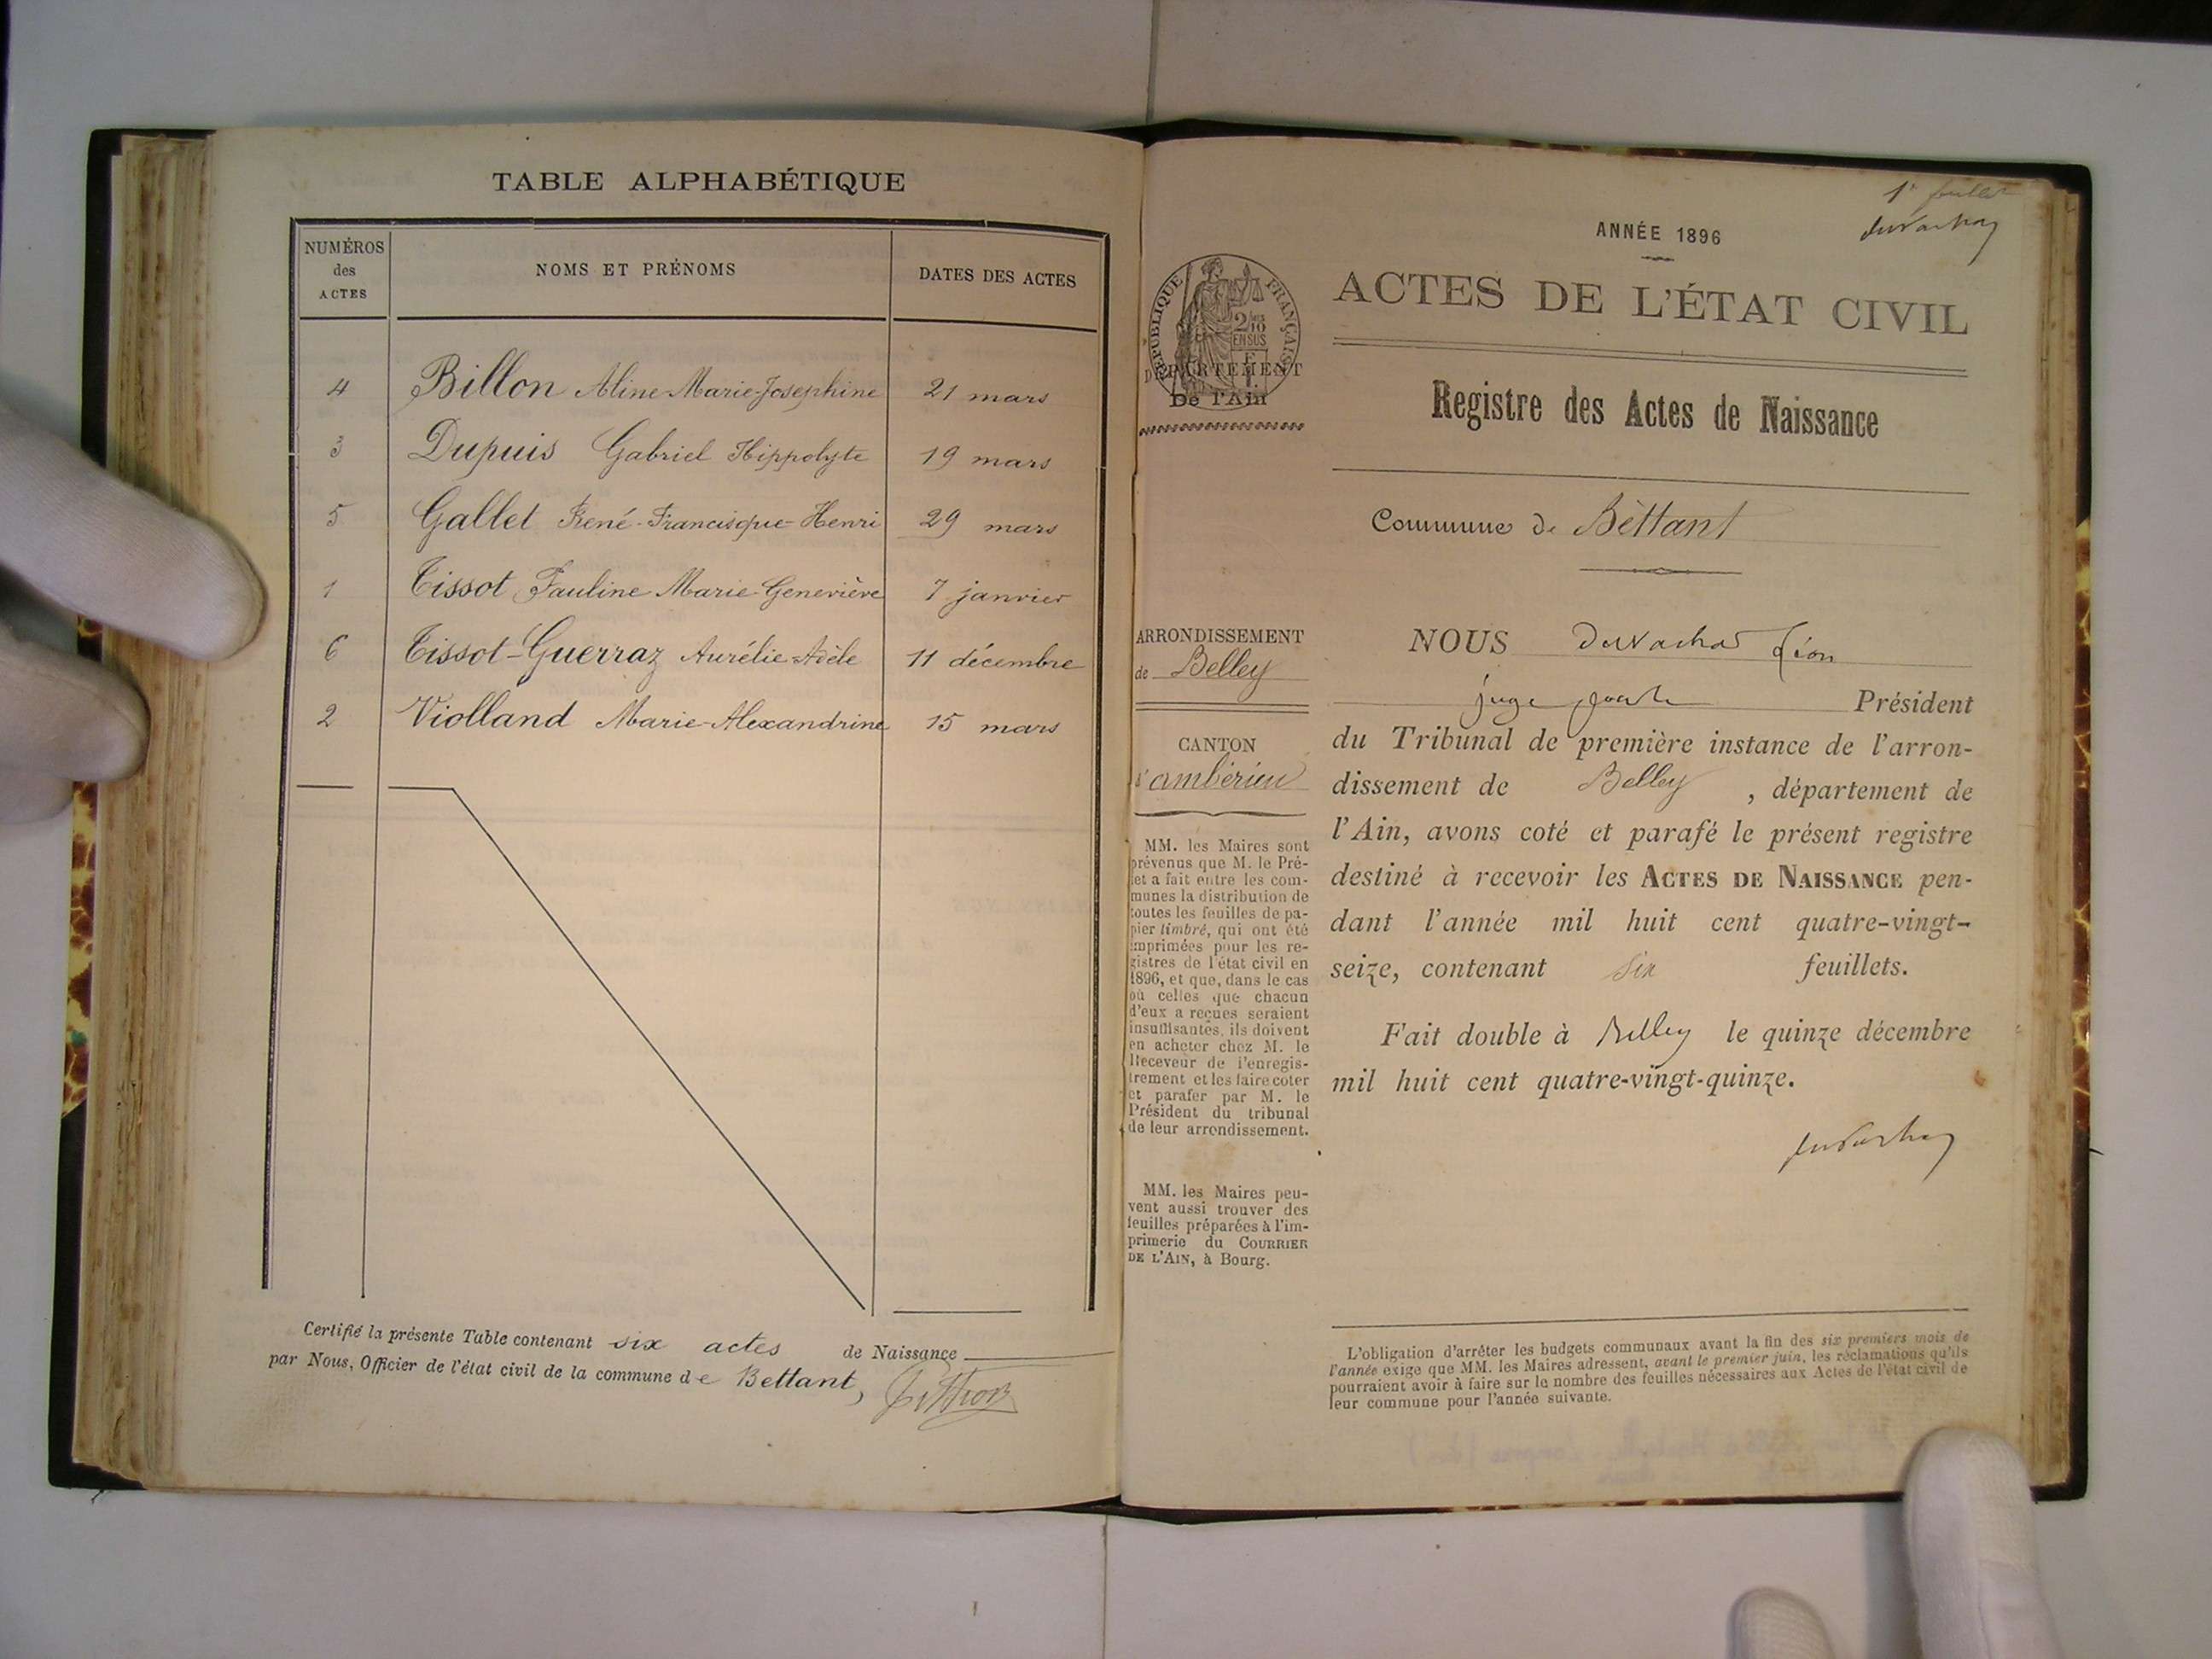 TABLE ALPHABÉTIQUE
NUMÉROS
des
ACTES
NOMS ET PRÉNOMS
DATES DES ACTES
4 Billon Aline-Marie-Josephine 21 mars
3 Dupuis Gabriel Hippolyte 19 mars
5 Gallet René-Francisque-Henri 29 mars
1 Tissot Pauline-Marie-Geneviève 7 janvier
6 Tissot-Guerraz Aurélie-Adèle 11 décembre
2 Violland Marie-Alexandrine 15 mars
Certifié la présente Table contenant six actes de Naissance
par Nous, Officier de l'état civil de la commune de Bettant,
1er feuillet
ANNÉE 1896
RÉPUBLIQUE FRANÇAISE
2/10
EN SUS
DÉPARTEMENT
De l'Ain
ACTES DE L'ÉTAT CIVIL
Registre des Actes de Naissance
Commune de Bettant
ARRONDISSEMENT
de Belley
CANTON
d'ambérieu
MM. les Maires sont
prévenus que M. le Pré-
fet a fait entre les com-
munes la distribution de
toutes les feuilles de pa-
pier timbré, qui ont été
imprimées pour les re-
gistres de l'état civil en
1896, et que, dans le cas
où celles que chacun
d'eux a reçues seraient
insuffisantes, ils doivent
en acheter chez M. le
Receveur de l'enregis-
trement et les faire coter
et parafer par M. le
Président du tribunal
de leur arrondissement.
MM. les Maires peu-
vent aussi trouver des
feuilles préparées à l'im-
primerie du COURRIER
DE L'AIN, à Bourg.
NOUS Léon
juge Président
du Tribunal de première instance de l'arron-
dissement de Belley, département de
l'Ain, avons coté et parafé le présent registre
destiné à recevoir les ACTES DE NAISSANCE pen-
dant l'année mil huit cent quatre-vingt-
seize, contenant six feuillets.
Fait double à Belley le quinze décembre
mil huit cent quatre-vingt-quinze.
L'obligation d'arrêter les budgets communaux avant la fin des six premiers mois de
l'année exige que MM. les Maires adressent, avant le premier juin, les réclamations qu'ils
pourraient avoir à faire sur le nombre des feuilles nécessaires aux Actes de l'état civil de
leur commune pour l'année suivante.